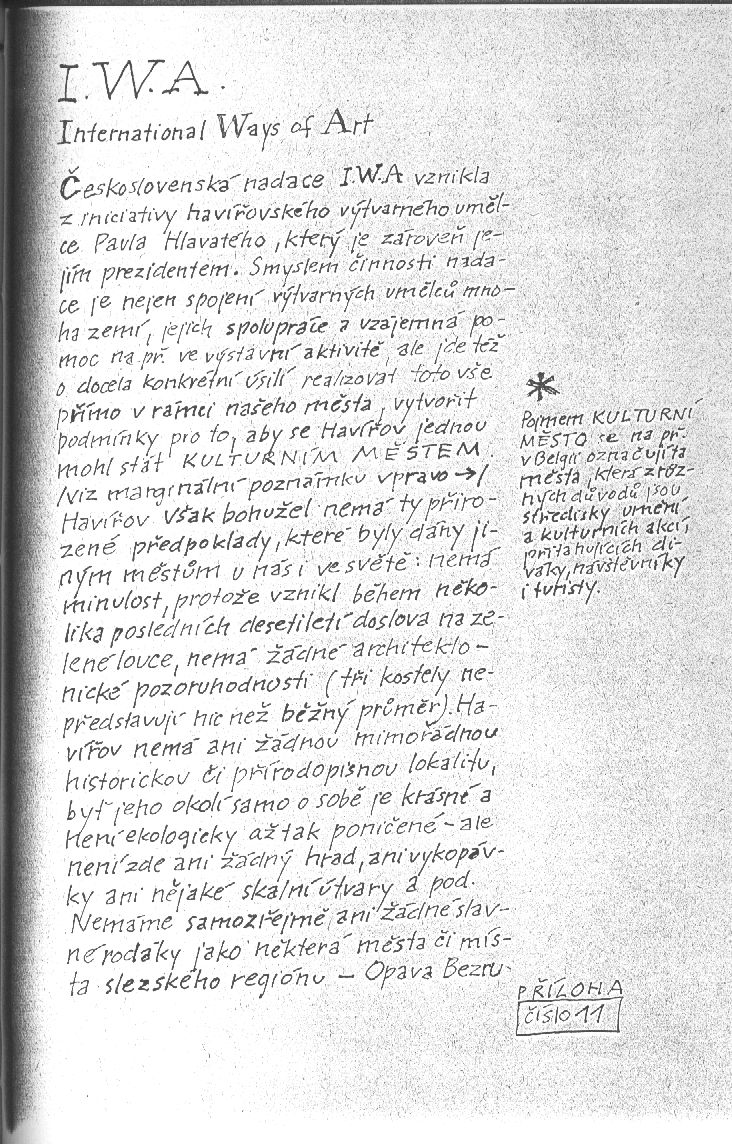 I.W.A.
International Ways of Art
Československá nadace I.W.A vznikla
z iniciativy havířovského výtvarného uměl-
ce Pavla Hlavatého, který je zároveň je-
jím prezidentem. Smyslem činnosti nada-
ce je nejen spojení výtvarných umělců mno-
ha zemí, jejich spolupráce a vzájemná po-
moc na př. ve výstavní aktivitě, ale jde též
o docela konkrétní úsilí realizovat toto vše
přímo v rámci našeho města, vytvořit
podmínky pro to, aby se Havířov jednou
mohl stát KULTURNÍM MĚSTEM.
/viz marginální poznámku vpravo →/
Havířov však bohužel nemá ty přiro-
zené předpoklady, které byly dány ji-
ným městům u nás i ve světě: nemá
minulost, protože vznikl během něko-
lika posledních desetiletí doslova na ze-
lené louce, nemá žádné architekto-
nické pozoruhodnosti (tři kostely ne-
představují nic než běžný průměr). Ha-
vířov nemá ani žádnou mimořádnou
historickou či přírodopisnou lokalitu,
byť jeho okolí samo o sobě je krásné a
není ekologicky až tak poničené - ale
není zde ani žádný hrad, ani vykopáv-
ky ani nějaké skalní útvary a pod.
Nemáme samozřejmě ani žádné slav-
né rodáky jako některá města či mís-
ta slezského regiónu - Opava Bezru-
*
Pojmem KULTURNÍ
MĚSTO se na př.
v Belgii označují ta
města, která z růz-
ných důvodů jsou
středisky umění
a kulturních akcí,
přitahujících di-
váky, návštěvníky
i turisty.
PŘÍLOHA
číslo 11